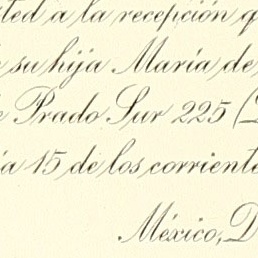 ted a la recepción q
su hija María de
Prado Sur 225 (
a 15 de los corriente
México, D